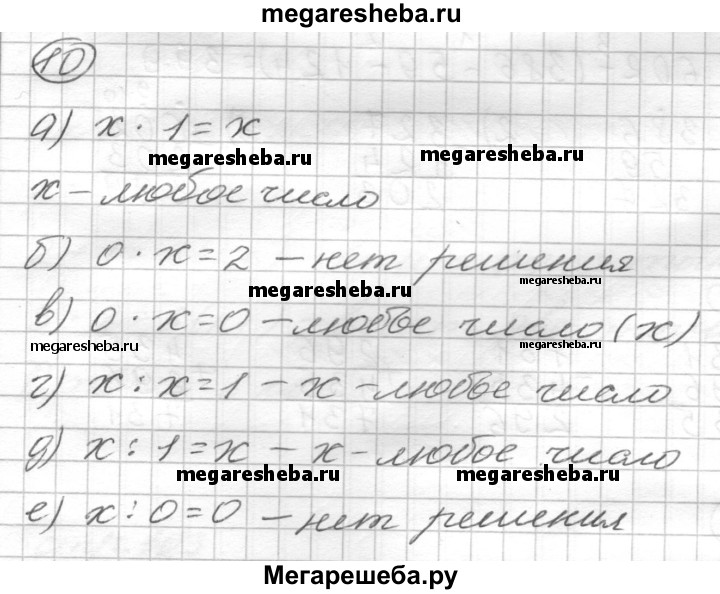 megaresheba.ru
10
а) x · 1 = x
megaresheba.ru megaresheba.ru
x - любое число
б) 0 · x = 2 - нет решения
megaresheba.ru megaresheba.ru
в) 0 · x = 0 - любое число (x)
megaresheba.ru megaresheba.ru
г) x : x = 1 - x - любое число
д) x : 1 = x - x - любое число
megaresheba.ru megaresheba.ru
е) x : 0 = 0 - нет решения
Мегарешеба.ру